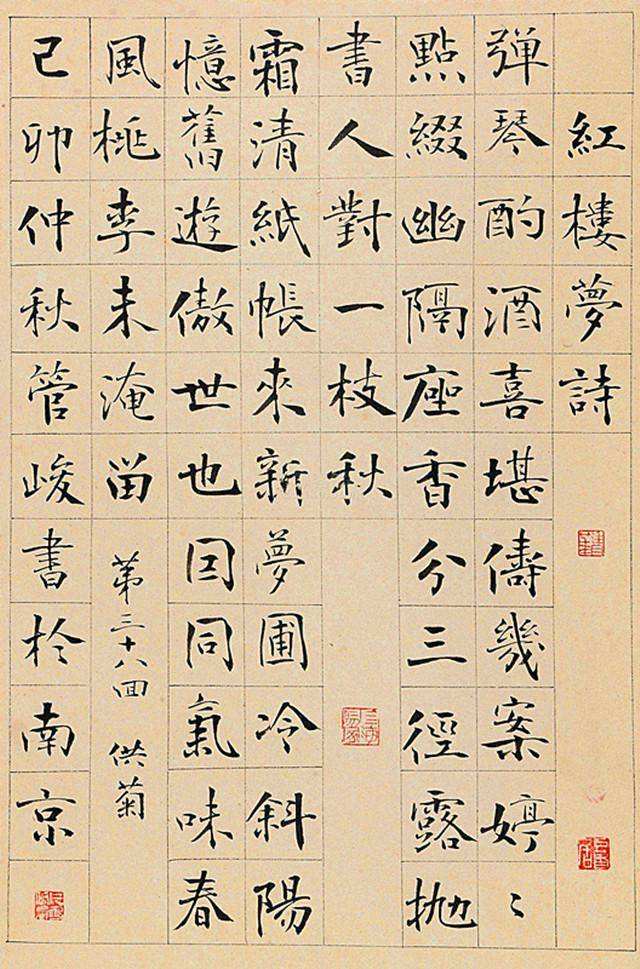 紅樓夢詩
彈琴酌酒喜堪儔幾案婷〻
點綴幽隔座香分三徑露拋
書人對一枝秋
霜清紙帳來新夢圃冷斜陽
憶舊遊傲世也因同氣味春
風桃李未淹留 第三十八回 供菊
己卯仲秋管峻書於南京